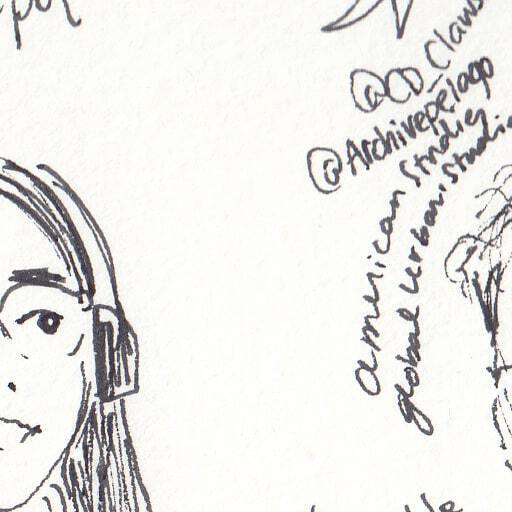 @CD_Claws
@Archivepelago
american studies
global urban studies